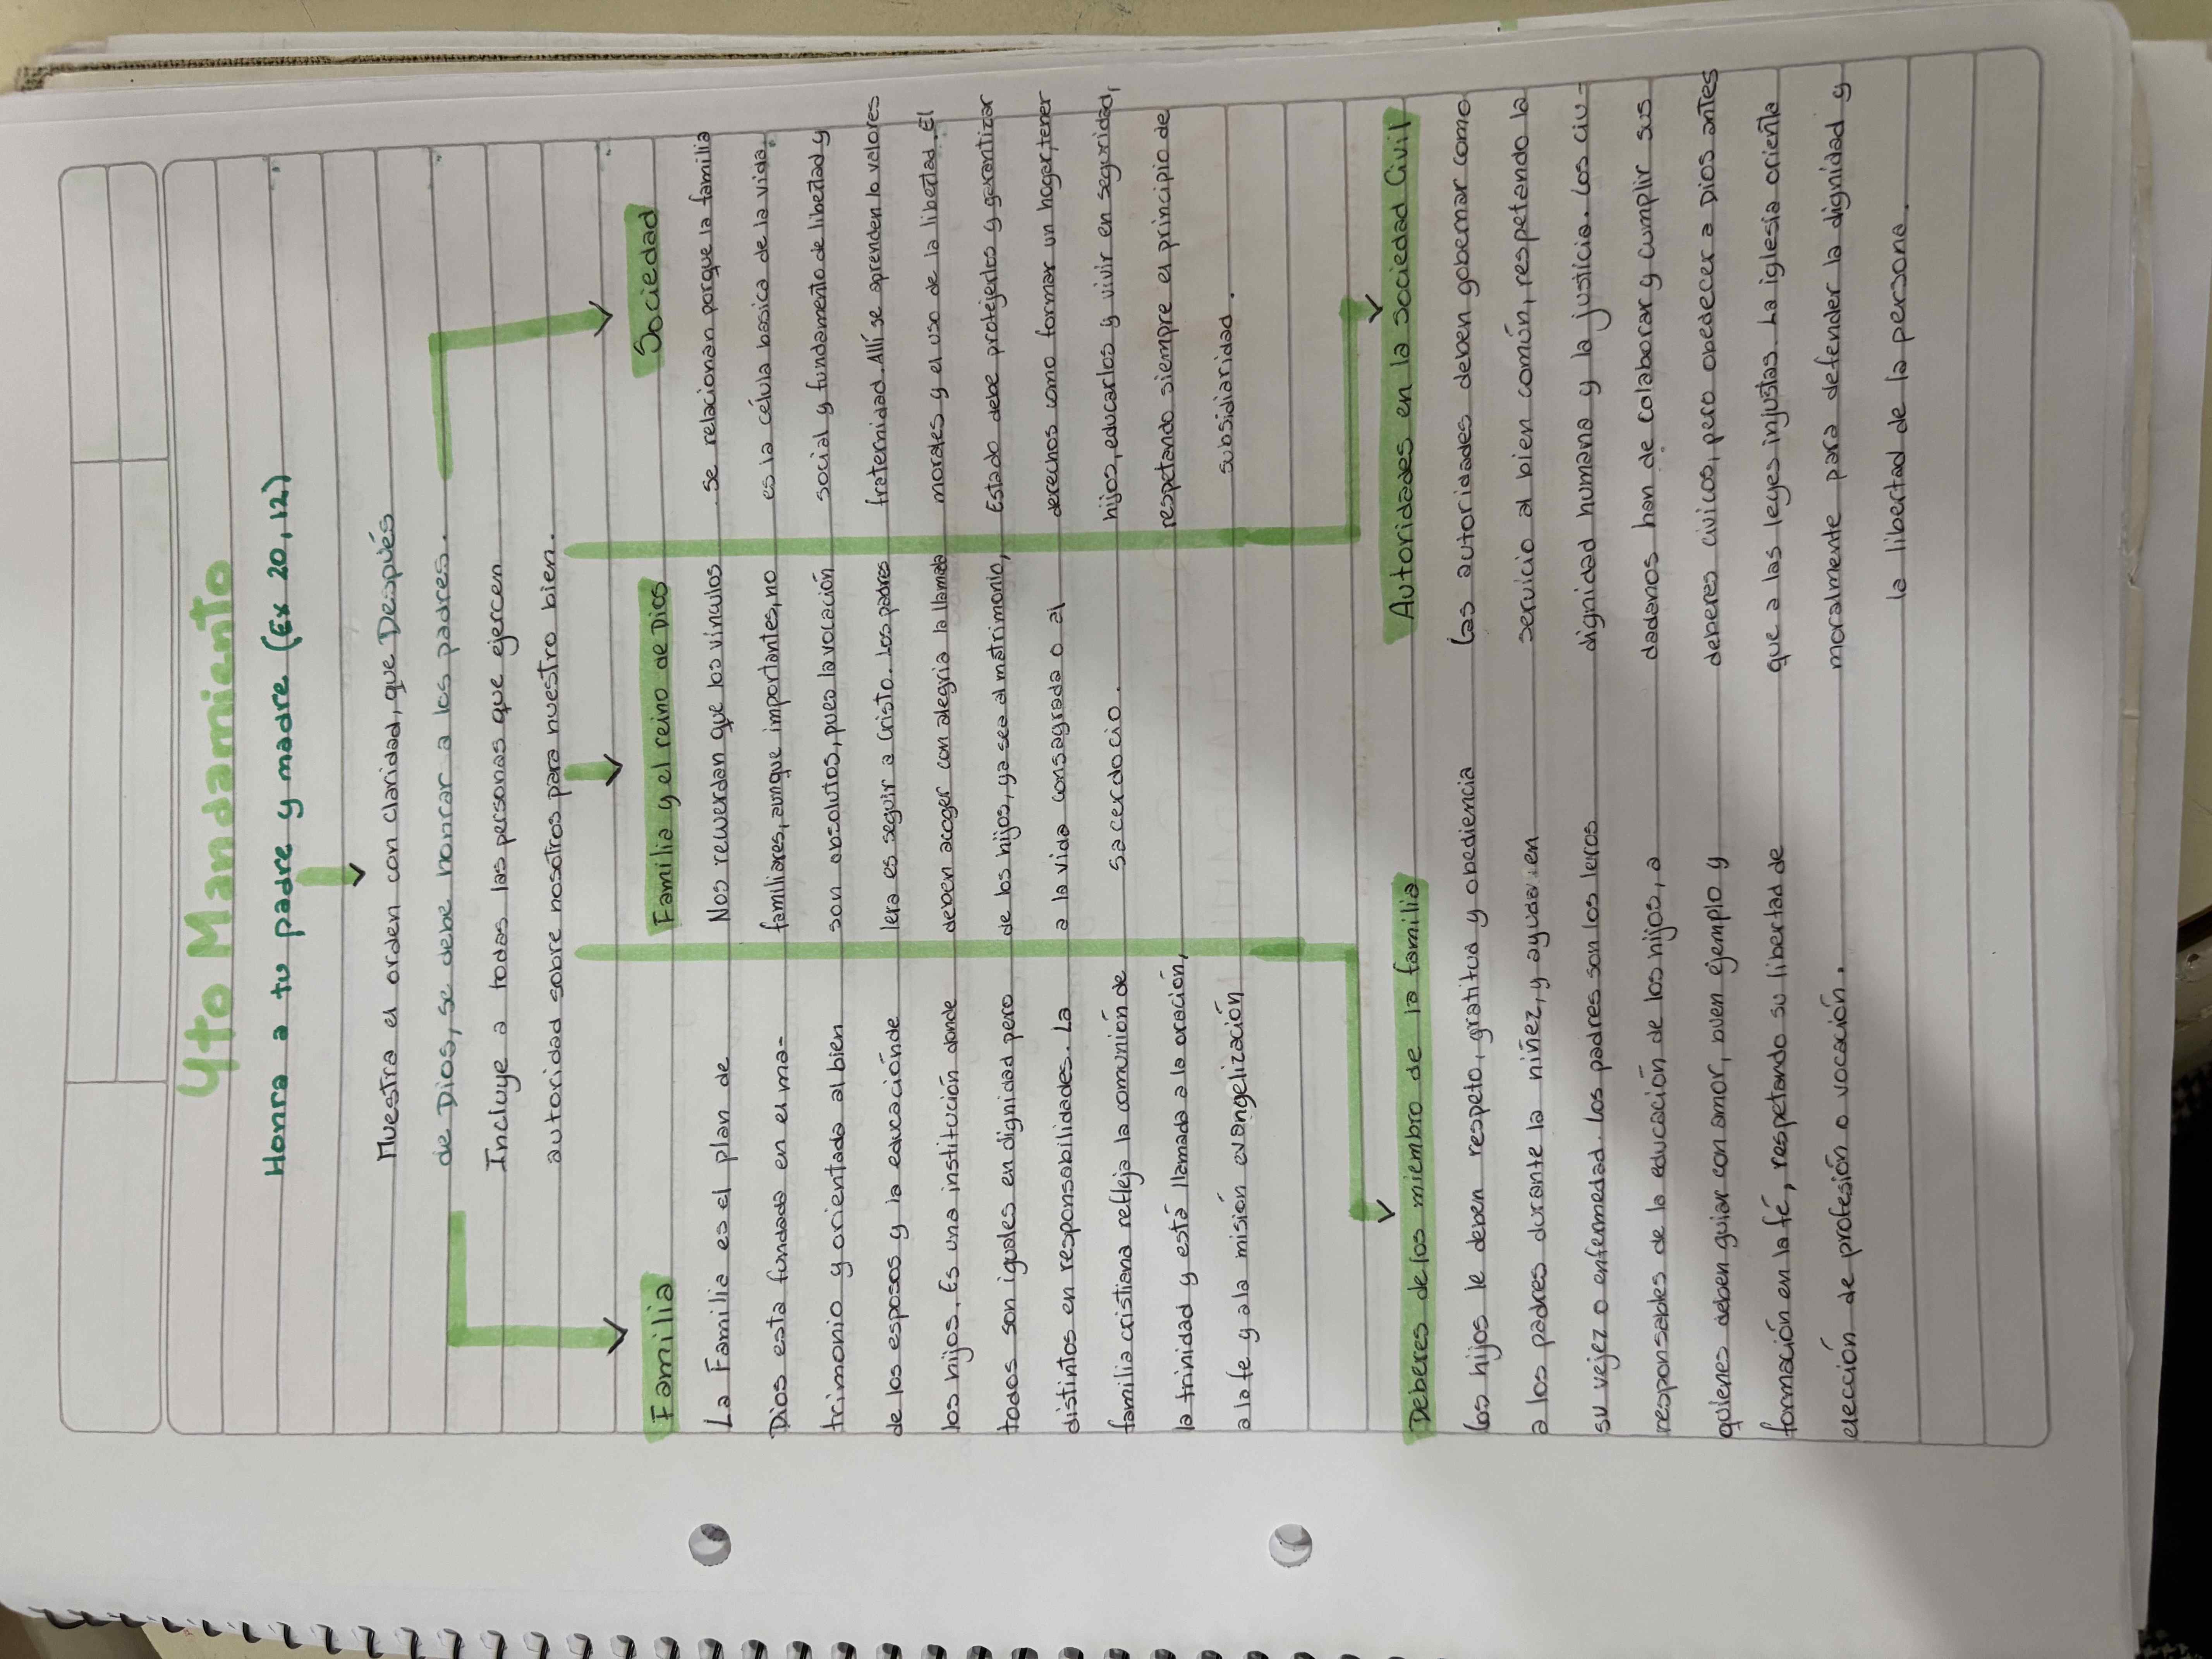 4to Mandamiento
Honra a tu padre y madre (Ex 20,12)
Muestra el orden con claridad, que Después
de Dios, se debe honrar a los padres.
Incluye a todas las personas que ejercen
autoridad sobre nosotros para nuestro bien.
Familia
La Familia es el plan de
Dios esta fundada en el ma-
trimonio y orientada al bien
de los esposos y la educaciónde
los hijos. Es una institución donde
todos son iguales en dignidad pero
distintos en responsabilidades. La
familia cristiana refleja la comunión de
la trinidad y está llamada a la oración,
a la fe y a la misión evangelización
Familia y el reino de Dios
Nos recuerdan que los vinculos
familiares, aunque importantes, no
son absolutos, pues la vocación
1era es seguir a Cristo. Los padres
deben acoger con alegria la llamada
de los hijos, ya sea al matrimonio,
a la vida consagrada o al
sacerdocio.
Sociedad
se relacionan porque la familia
es la célula basica de la vida
social y fundamento de libertad y
fraternidad. Allí se aprenden lo valores
morales y el uso de la libertad. El
Estado debe protejerlos y garantizar
derechos como formar un hogar, tener
hijos, educarlos y vivir en seguridad,
respetando siempre el principio de
subsidiaridad.
Deberes de los miembro de la familia
Los hijos le deben respeto, gratitud y obediencia
a los padres durante la niñez, y ayuda en
su vejez o enfermedad. Los padres son los 1eros
responsables de la educación de los hijos, a
quienes deben guiar con amor, buen ejemplo y
formación en la fé, respetando su libertad de
elección de profesión o vocación.
Autoridades en la sociedad Civil
Las autoridades deben gobernar como
servicio al bien común, respetando la
dignidad humana y la justicia. Los ciu-
dadanos han de colaborar y cumplir sus
deberes civicos, pero obedecer a Dios antes
que a las leyes injustas. La iglesia orienta
moralmente para defender la dignidad y
la libertad de la persona.